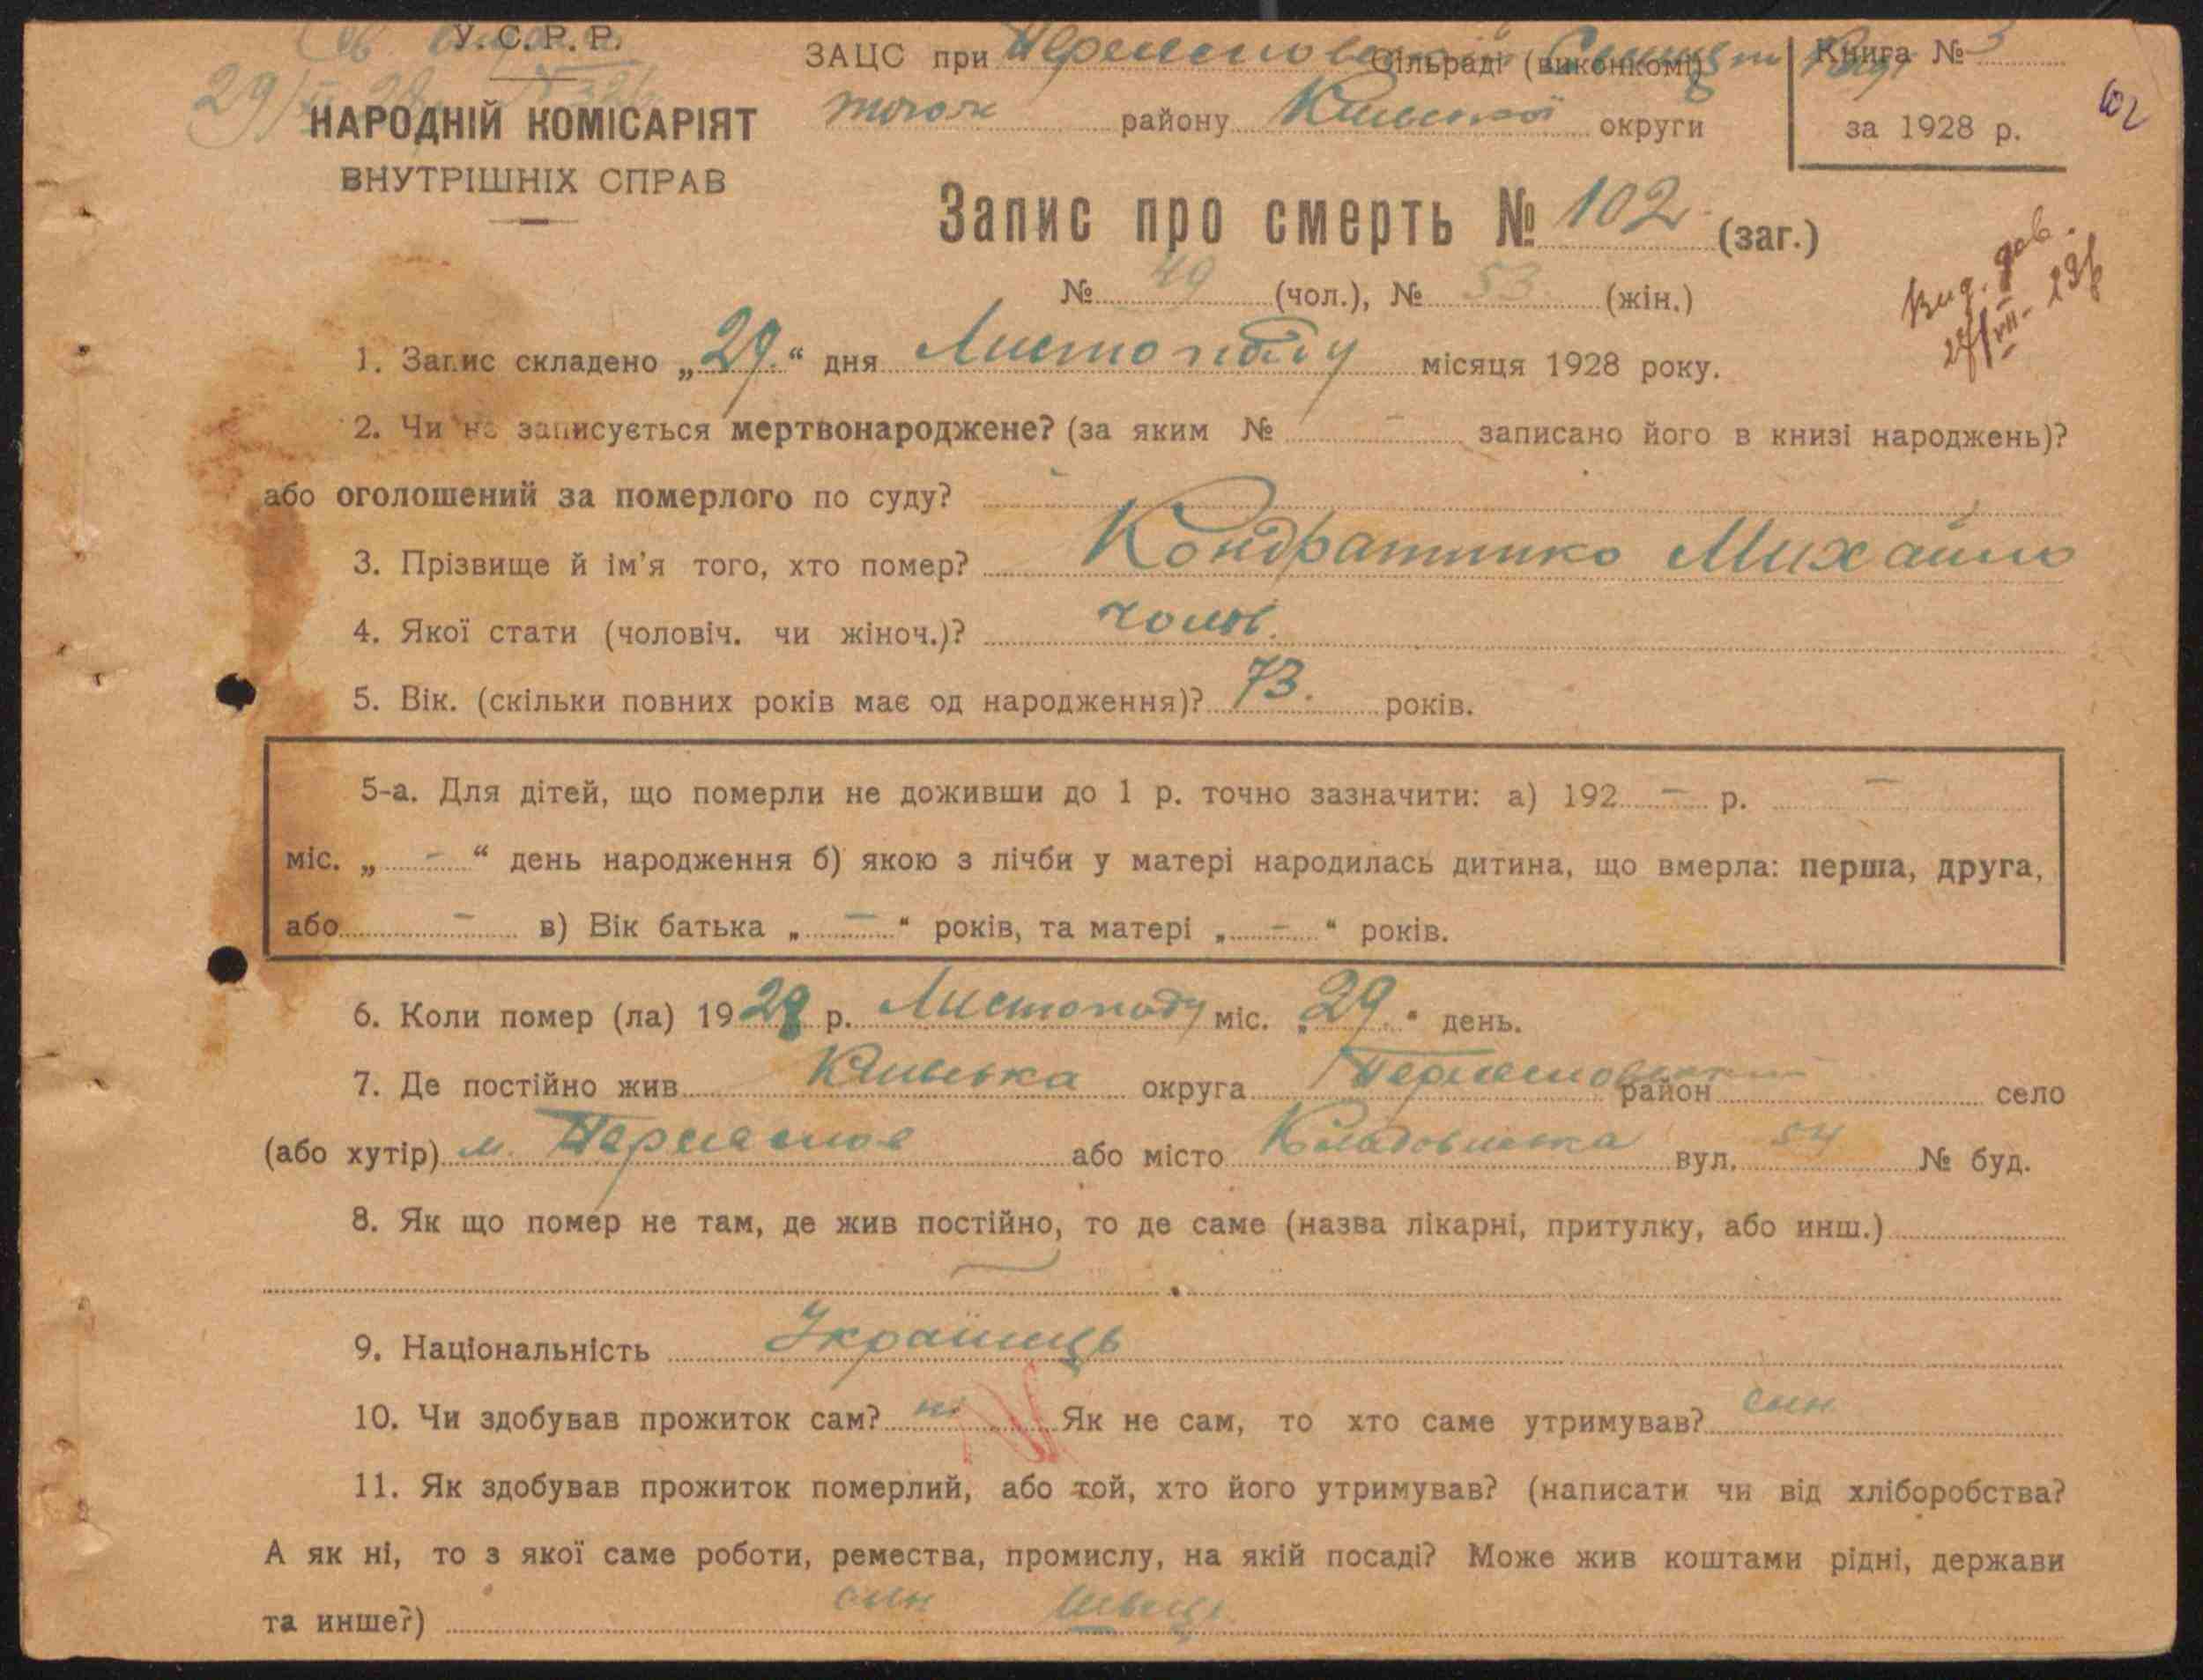 У.С.Р.Р.
НАРОДНІЙ КОМІСАРІЯТ
ВНУТРІШНІХ СПРАВ
ЗАЦС при сільраді (виконкомі)
того ж району Київської округи
Книга № 3
за 1928 р.
102
Запис про смерть № 102 (заг.)
№ 49 (чол.), № 53 (жін.)
Вид. дов.
1. Запис складено „29“ дня Листопаду місяця 1928 року.
2. Чи не записується мертвонароджене? (за яким № – записано його в книзі народжень)?
або оголошений за померлого по суду? –
3. Прізвище й ім'я того, хто помер? Кондратенко Михайло
4. Якої стати (чоловіч. чи жіноч.)? чолов.
5. Вік. (скільки повних років має од народження)? 73. років.
5-а. Для дітей, що померли не доживши до 1 р. точно зазначити: а) 192 – р. –
міс. „ – “ день народження б) якою з лічби у матері народилась дитина, що вмерла: перша, друга,
або – в) Вік батька „ – “ років, та матері „ – “ років.
6. Коли помер (ла) 1928 р. Листопаду міс. „29.“ день.
7. Де постійно жив Київська округа район село
(або хутір) м. Переяслов або місто вул. 54 № буд.
8. Як що помер не там, де жив постійно, то де саме (назва лікарні, притулку, або инш.)
9. Національність Українець
10. Чи здобував прожиток сам? ні Як не сам, то хто саме утримував? син
11. Як здобував прожиток померлий, або той, хто його утримував? (написати чи від хліборобства?
А як ні, то з якої саме роботи, ремества, промислу, на якій посаді? Може жив коштами рідні, держави
та инше?) син швець